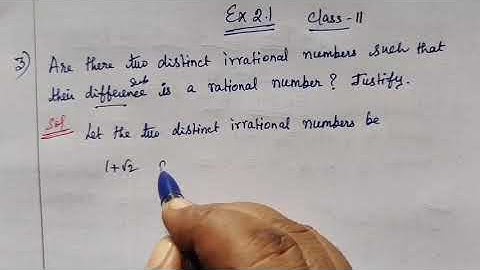 Ex 2.1 Class-11
3) Are there two distinct irrational numbers such that
Sub
their difference is a rational number? Justify.
Sol Let the two distinct irrational numbers be
1+√2